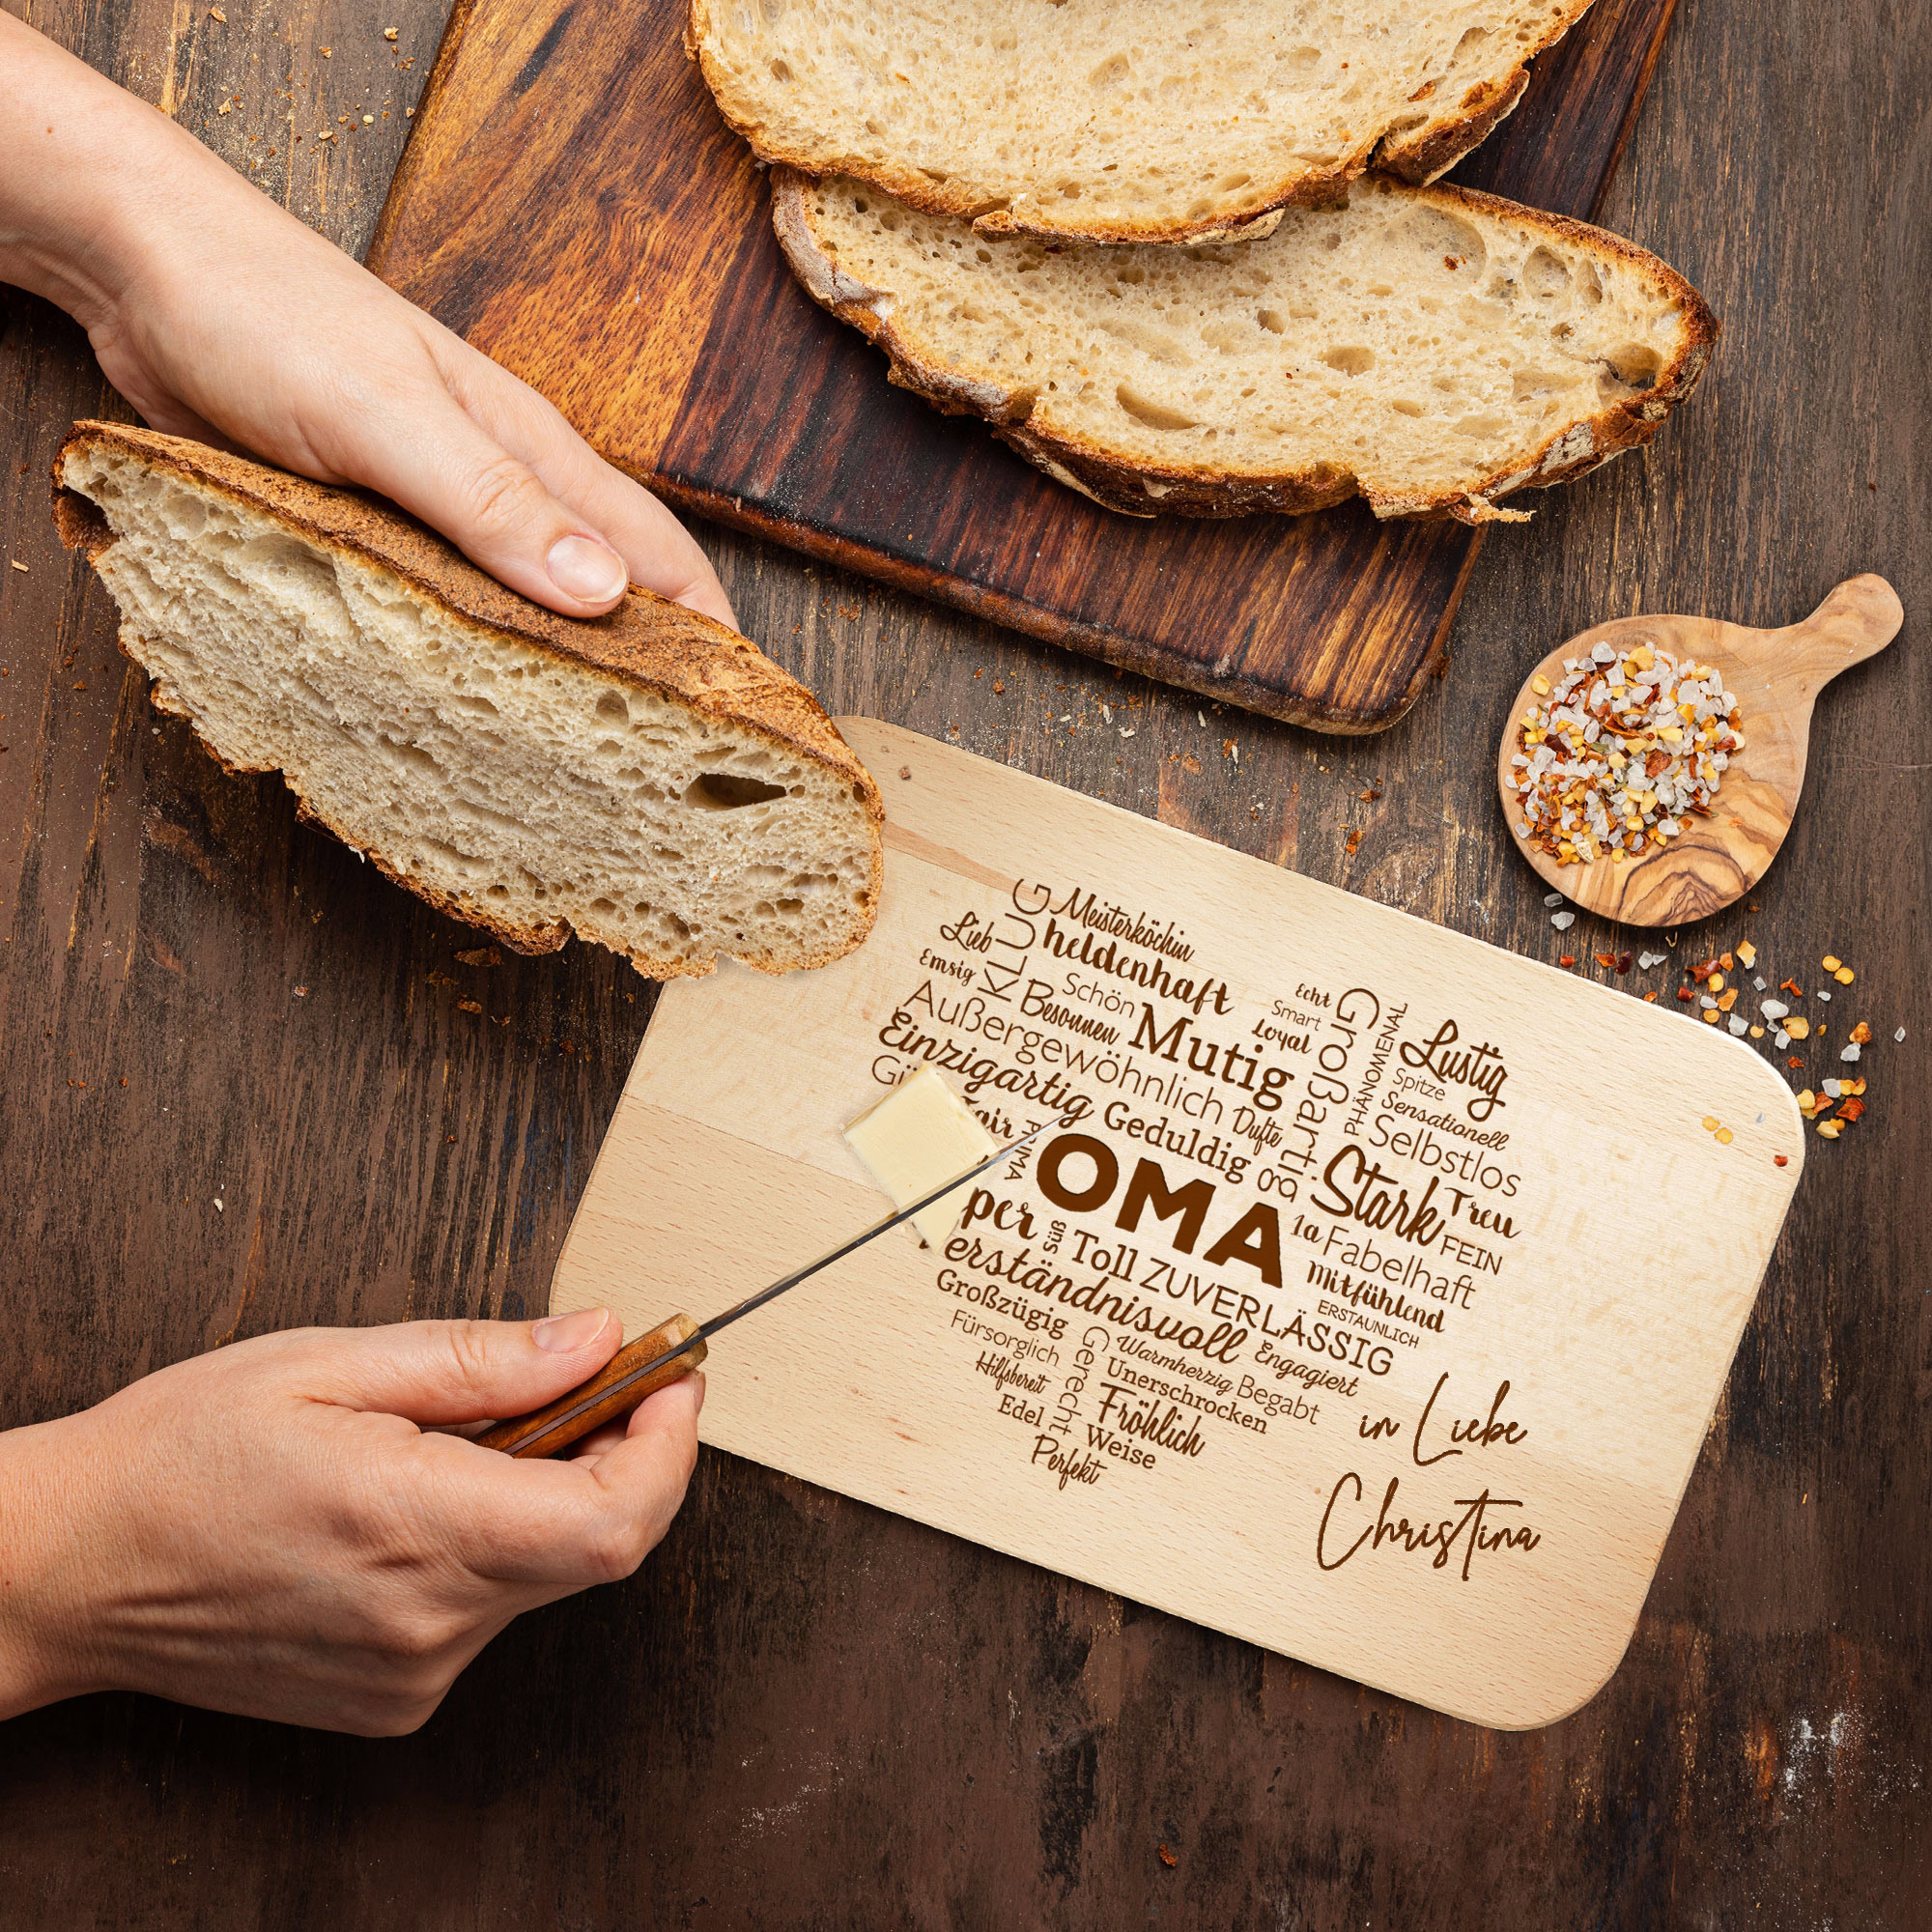 Meisterköchin
Klug
Lieb
heldenhaft
Emsig
Schön
Besonnen
Außergewöhnlich
Mutig
Einzigartig
Geduldig
Dufte
Echt
Smart
Loyal
Großartig
PHÄNOMENAL
Lustig
Spitze
Sensationell
Selbstlos
PRIMA
OMA
Stark
Treu
FEIN
1a
Fabelhaft
Mitfühlend
ERSTAUNLICH
süß
Toll
ZUVERLÄSSIG
Großzügig
Fürsorglich
Gerecht
Warmherzig
Engagiert
Hilfsbereit
Unerschrocken
Begabt
Edel
Fröhlich
Weise
Perfekt
in Liebe
Christina